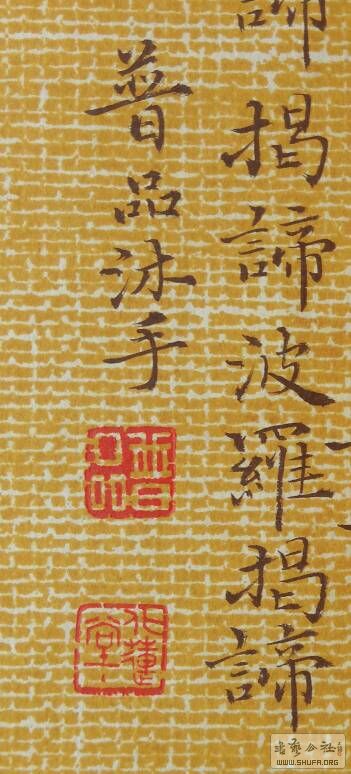 諦揭諦波羅揭諦
普品沐手
普品
WWW.SHUFA.ORG